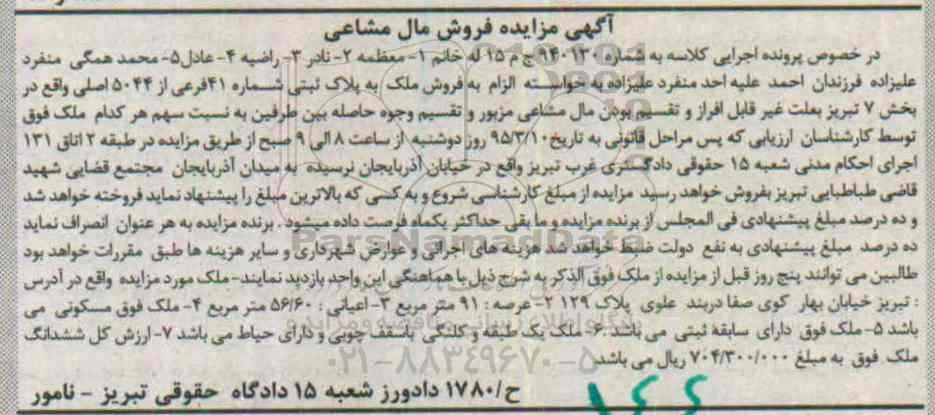 آگهی مزایده فروش مال مشاعی
در خصوص پرونده اجرایی کلاسه به شماره ۹۴۰۱۳۰ ج م ۱۵ له خانم ۱- معظمه ۲- نادر ۳- راضیه ۴- عادل ۵- محمد همگی منفرد
علیزاده فرزندان احمد علیه احد منفرد علیزاده به خواسته الزام به فروش ملک به پلاک ثبتی شماره ۴۱ فرعی از ۵۰۴۴ اصلی واقع در
بخش ۷ تبریز بعلت غیر قابل افراز و تقسیم بودن مال مشاعی مزبور و تقسیم وجوه حاصله بین طرفین به نسبت سهم هر کدام ملک فوق
توسط کارشناسان ارزیابی که پس مراحل قانونی به تاریخ ۹۵/۳/۱۰ روز دوشنبه از ساعت ۸ الی ۹ صبح از طریق مزایده در طبقه ۲ اتاق ۱۳۱
اجرای احکام مدنی شعبه ۱۵ حقوقی دادگستری غرب تبریز واقع در خیابان آذربایجان نرسیده به میدان آذربایجان مجتمع قضایی شهید
قاضی طباطبایی تبریز بفروش خواهد رسید مزایده از مبلغ کارشناسی شروع و به کسی که بالاترین مبلغ را پیشنهاد نماید فروخته خواهد شد
و ده درصد مبلغ پیشنهادی فی المجلس از برنده مزایده و ما بقی حداکثر یکماه فرصت داده میشود . برنده مزایده به هر عنوان انصراف نماید
ده درصد مبلغ پیشنهادی به نفع دولت ضبط خواهد شد هزینه های اجرائی و عوارض شهرداری و سایر هزینه ها طبق مقررات خواهد بود
طالبین می توانند پنج روز قبل از مزایده از ملک فوق الذکر به شرح ذیل با هماهنگی این واحد بازدید نمایند- ملک مورد مزایده واقع در آدرس
: تبریز خیابان بهار کوی صفا دربند علوی پلاک ۱۲۹ ۲- عرصه : ۹۱ متر مربع ۳- اعیانی : ۵۶/۶۰ متر مربع ۴- ملک فوق مسکونی می
باشد ۵- ملک فوق دارای سابقه ثبتی می باشد ۶- ملک یک طبقه و کلنگی باسقف چوبی و دارای حیاط می باشد ۷- ارزش کل ششدانگ
ملک فوق به مبلغ ۷۰۴/۳۰۰/۰۰۰ ریال می باشد
ح/۱۷۸۰ دادورز شعبه ۱۵ دادگاه حقوقی تبریز - نامور
ParsNamadData
۰۲۱-۸۸۳۴۹۶۷۰-۵